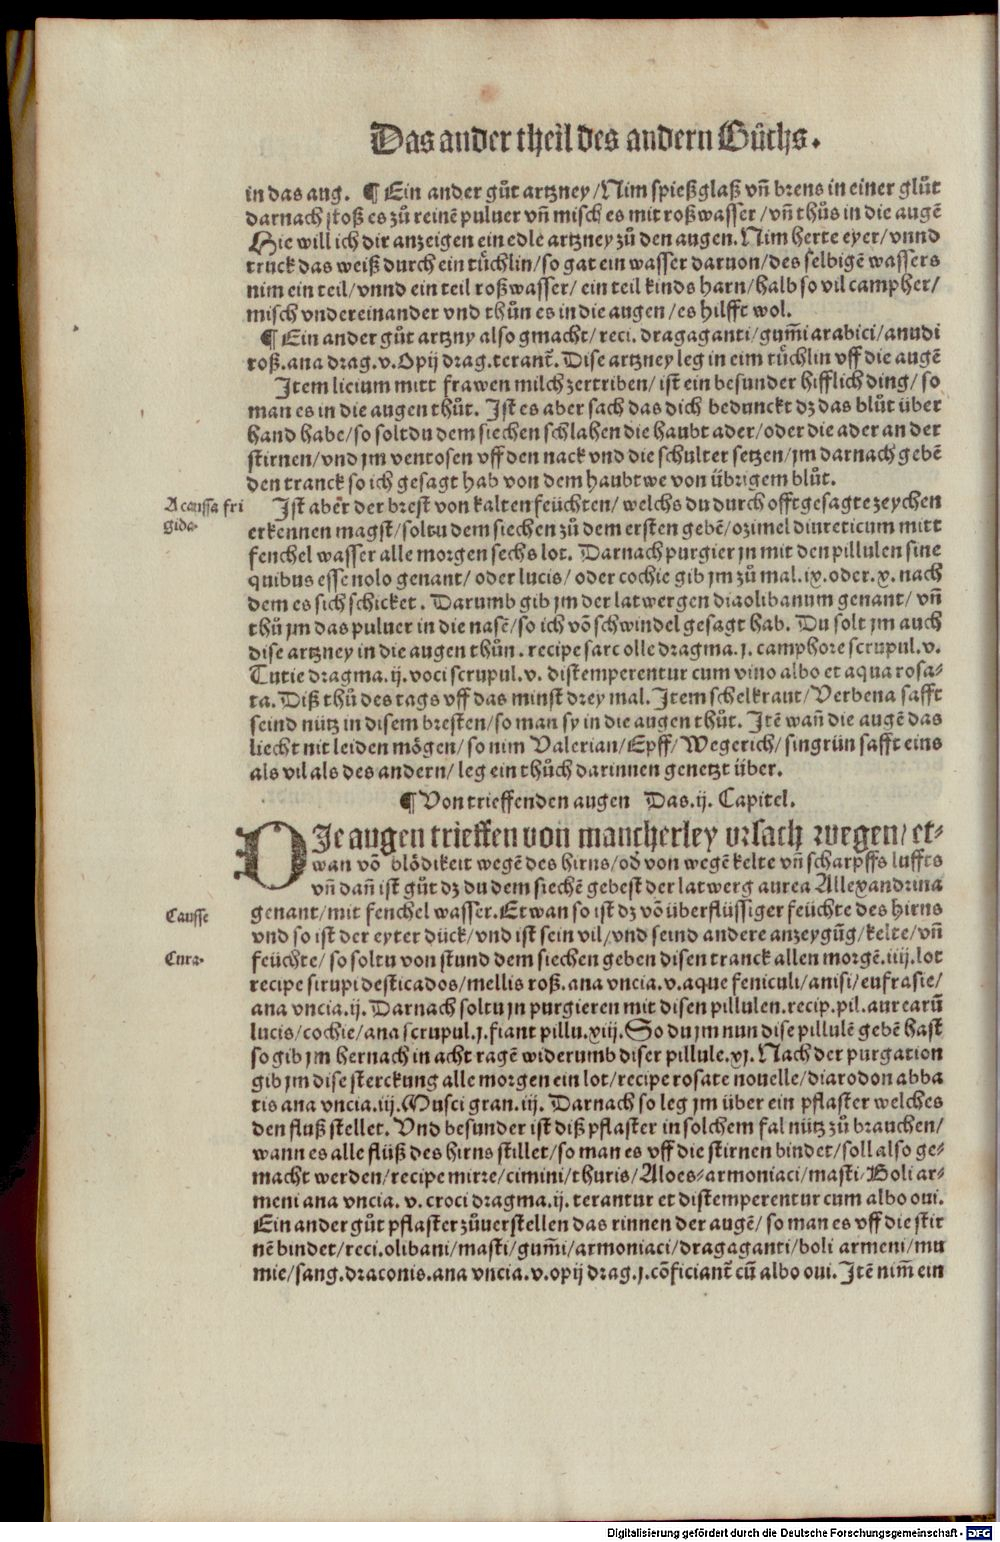 Das ander theil des andern Bůchs.
in das aug. ¶ Ein ander gůt artzney / Nim spießglaß vñ brens in einer glůt
darnach stoß es zů reinē puluer vñ misch es mit roßwasser / vñ thůs in die augē
Hie will ich dir anzeigen ein edle artzney zů den augen. Nim herte eyer / vnnd
truck das weiß durch ein tůchlin / so gat ein wasser daruon / des selbigē wassers
nim ein teil / vnnd ein teil roßwasser / ein teil kinds harn / halb so vil campher /
misch vndereinander vnd thůn es in die augen / es hilfft wol.
¶ Ein ander gůt artzny also gmacht / reci. dragaganti / gum̃i arabici / anudi
roß. ana drag. v. Opij drag. terant̃. Dise artzney leg in eim tůchlin vff die augē
Item licium mitt frawen milch zertriben / ist ein besunder hifflich ding / so
man es in die augen thůt. Ist es aber sach das dich bedunckt dz das blůt über
hand habe / so solt du dem siechen schlahen die haubt ader / oder die ader an der
stirnen / vnd jm ventosen vff den nack vnd die schulter setzen / jm darnach gebē
den tranck so ich gesagt hab von dem haubtwe von übrigem blůt.
A caussa fri
gida.
Ist aber der brest von kalten feüchten / welchs du durch offt gesagte zeychen
erkennen magst / soltu dem siechen zů dem ersten gebē / ozimel diureticum mitt
fenchel wasser alle morgen sechs lot. Darnach purgier jn mit den pillulen sine
quibus esse nolo genant / oder lucis / oder cochie gib jm zů mal. ix. oder. x. nach
dem es sich schicket. Darumb gib jm der latwergen diaolibanum genant / vñ
thů jm das puluer in die nasē / so ich vō schwindel gesagt hab. Du solt jm auch
dise artzney in die augen thůn. recipe sarc olle dragma. j. camphore scrupul. v.
Tutie dragma. ij. voci scrupul. v. distemperentur cum vino albo et aqua rosa-
ta. Diß thů des tags vff das minst drey mal. Item schelkraut / Verbena safft
seind nütz in disem bresten / so man sy in die augen thůt. Itē wañ die augē das
liecht nit leiden mögen / so nim Valerian / Epff / Wegerich / singrün safft eins
als vil als des andern / leg ein thůch darinnen genetzt über.
¶ Von trieffenden augen Das. ij. Capitel.
DIe augen trieffen von mancherley vrsach wegen / et-
wan vō blödikeit wegē des hirns / od̃ von wegē kelte vñ scharpffs luffts
vñ dañ ist gůt dz du dem siechē gebest der latwerg aurea Allexandrina
Causse
genant / mit fenchel wasser. Etwan so ist dz vō überflüssiger feüchte des hirns
vnd so ist der eyter dück / vnd ist sein vil / vnd seind andere anzeygūg / kelte / vñ
Cura.
feüchte / so soltu von stund dem siechen geben disen tranck allen morgē. iiij. lot
recipe sirupi desticados / mellis roß. ana vncia. v. aque feniculi / anisi / eufrasie /
ana vncia. ij. Darnach soltu jn purgieren mit disen pillulen. recip. pil. aurearū
lucis / cochie / ana scrupul. j. fiant pillu. xiij. So du jm nun dise pillulē gebē hast
so gib jm hernach in acht tagē widerumb diser pillule. xj. Nach der purgation
gib jm dise sterckung alle morgen ein lot / recipe rosate nouelle / diarodon abba
tis ana vncia. iij. Musci gran. iij. Darnach so leg jm über ein pflaster welches
den fluß stellet. Vnd besunder ist diß pflaster in solchem fal nütz zů brauchen /
wann es alle flüß des hirns stillet / so man es vff die stirnen bindet / soll also ge-
macht werden / recipe mirre / cimini / thuris / Aloes / armoniaci / masti / Boli ar-
meni ana vncia. v. croci dragma. ij. terantur et distemperentur cum albo oui.
Ein ander gůt pflaster zůuerstellen das rinnen der augē / so man es vff die stir
nē bindet / reci. olibani / masti / gum̃i / armoniaci / dragaganti / boli armeni / mu
mie / sang. draconis. ana vncia. v. opij drag. j. cōficiant̃ cū albo oui. Itē nim̃ ein
Digitalisierung gefördert durch die Deutsche Forschungsgemeinschaft - DFG